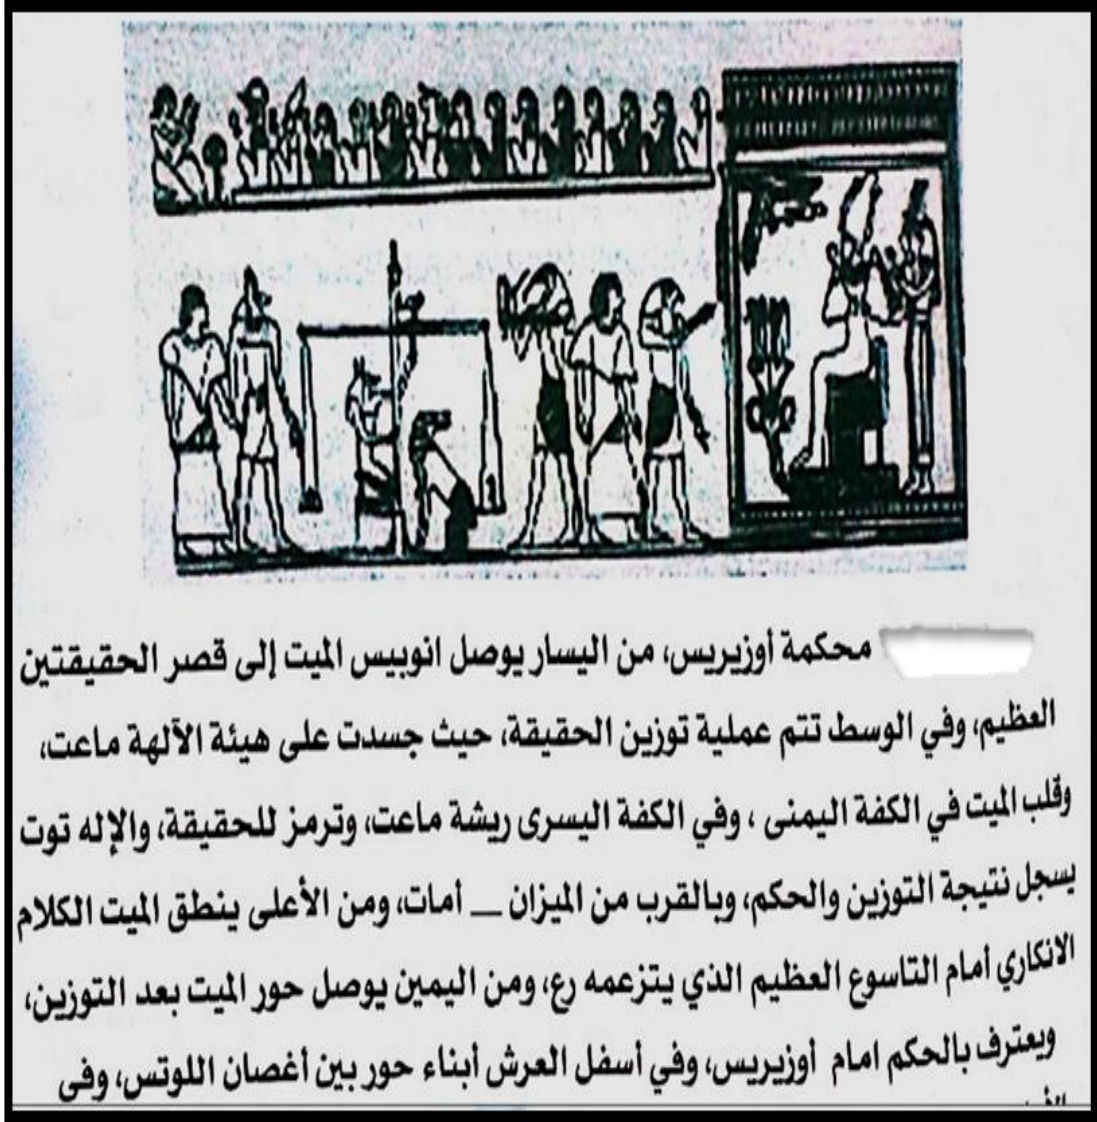 محكمة أوزيريس، من اليسار يوصل انوبيس الميت إلى قصر الحقيقتين
العظيم، وفي الوسط تتم عملية توزين الحقيقة، حيث جسدت على هيئة الآلهة ماعت،
وقلب الميت في الكفة اليمنى ، وفي الكفة اليسرى ريشة ماعت، وترمز للحقيقة، والإله توت
يسجل نتيجة التوزين والحكم، وبالقرب من الميزان __ أمات، ومن الأعلى ينطق الميت الكلام
الانكاري أمام التاسوع العظيم الذي يتزعمه رع، ومن اليمين يوصل حور الميت بعد التوزين،
ويعترف بالحكم امام أوزيريس، وفي أسفل العرش أبناء حور بين أغصان اللوتس، وفي